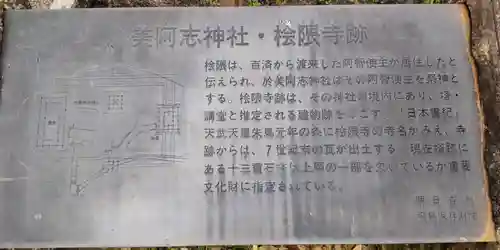 美阿志神社・桧隈寺跡
桧隈は、百済から渡来した阿智使主が居住したと
伝えられ、於美阿志神社はその阿智使主を祭神と
する。桧隈寺跡は、その神社の境内にあり、塔・
講堂と推定される建物跡をのこす 「日本書紀」
天武天皇朱鳥元年の条に桧隈寺の寺名がみえ、寺
跡からは、7世紀末の瓦が出土する 現在塔跡に
ある十三重石塔は上層の一部を欠いているが重要
文化財に指定されている。